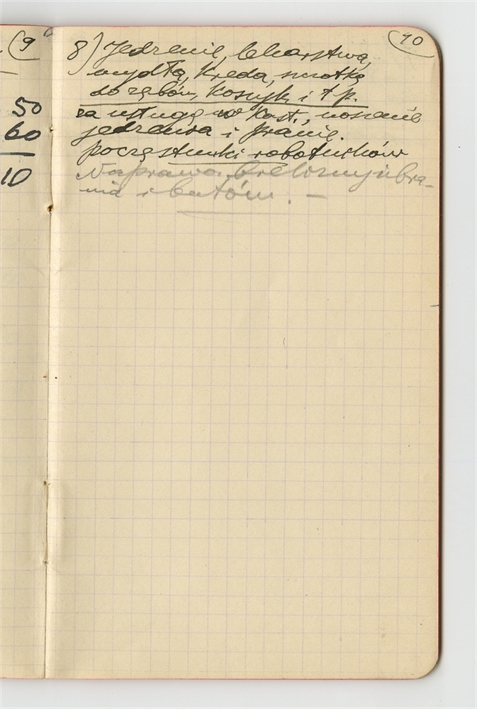 9
50
60
10
10
8) Jedzenie, lekarstwa,
mydło, kreda, szczotka
do zębów, koszyk i t.p.
za usługę w Kost., noszenie
jedzenia i pranie.
poczęstunki robotników
Naprawa bielizny, ubra-
nia i butów. –